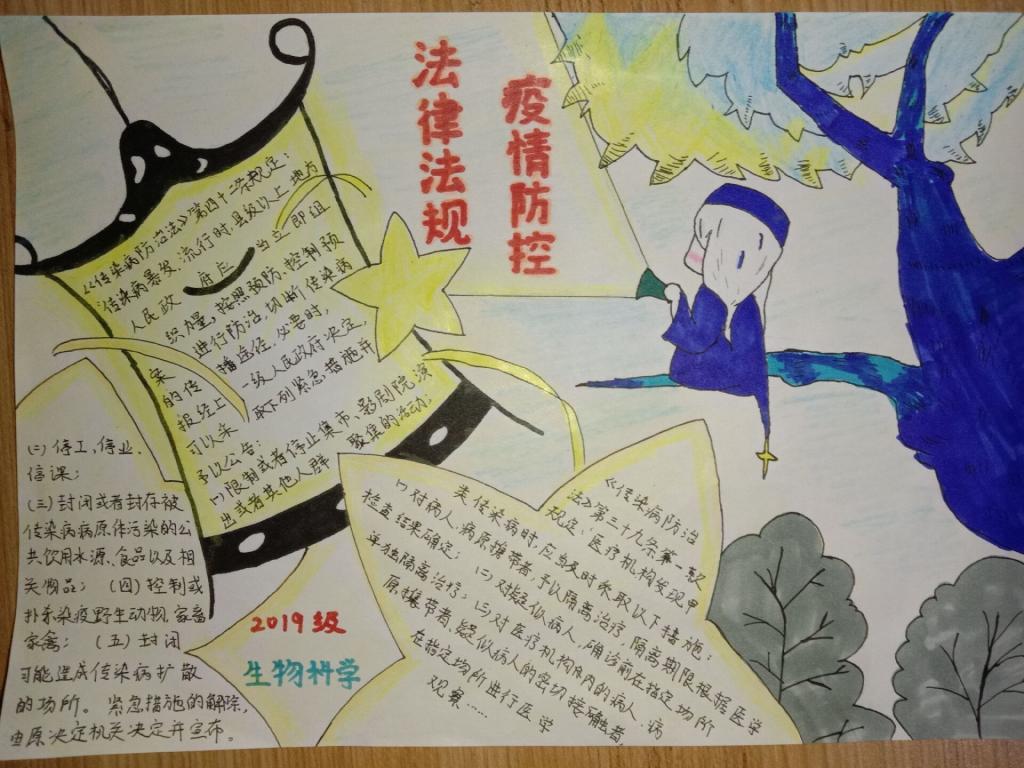 法律法规
疫情防控
《传染病防治法》第四十二条规定：
传染病暴发、流行时，县级以上地方
人民政 府应 当立即组
织力量，按照预防、控制预
案 进行防治，切断传染病
的传 播途径，必要时，
报经上 一级人民政府决定，
可以采 取下列紧急措施并
予以公告：
(一)限制或者停止集市、影剧院演
出或者其他人群 聚集的活动；
(二)停工、停业、
停课；
(三)封闭或者封存被
传染病病原体污染的公
共饮用水源、食品以及相
关物品；(四)控制或
扑杀染疫野生动物、家畜
家禽；(五)封闭
可能造成传染病扩散
的场所。紧急措施的解除，
由原决定机关决定并宣布。
《传染病防治
法》第三十九条第一款
规定：医疗机构发现甲
类传染病时，应当及时采取以下措施：
(一)对病人、病原携带者，予以隔离治疗，隔离期限根据医学
检查结果确定；(二)对疑似病人，确诊前在指定场所
单独隔离治疗；(三)对医疗机构内的病人、病
原携带者、疑似病人的密切接触者，
在指定场所进行医学
观察……
2019级
生物科学